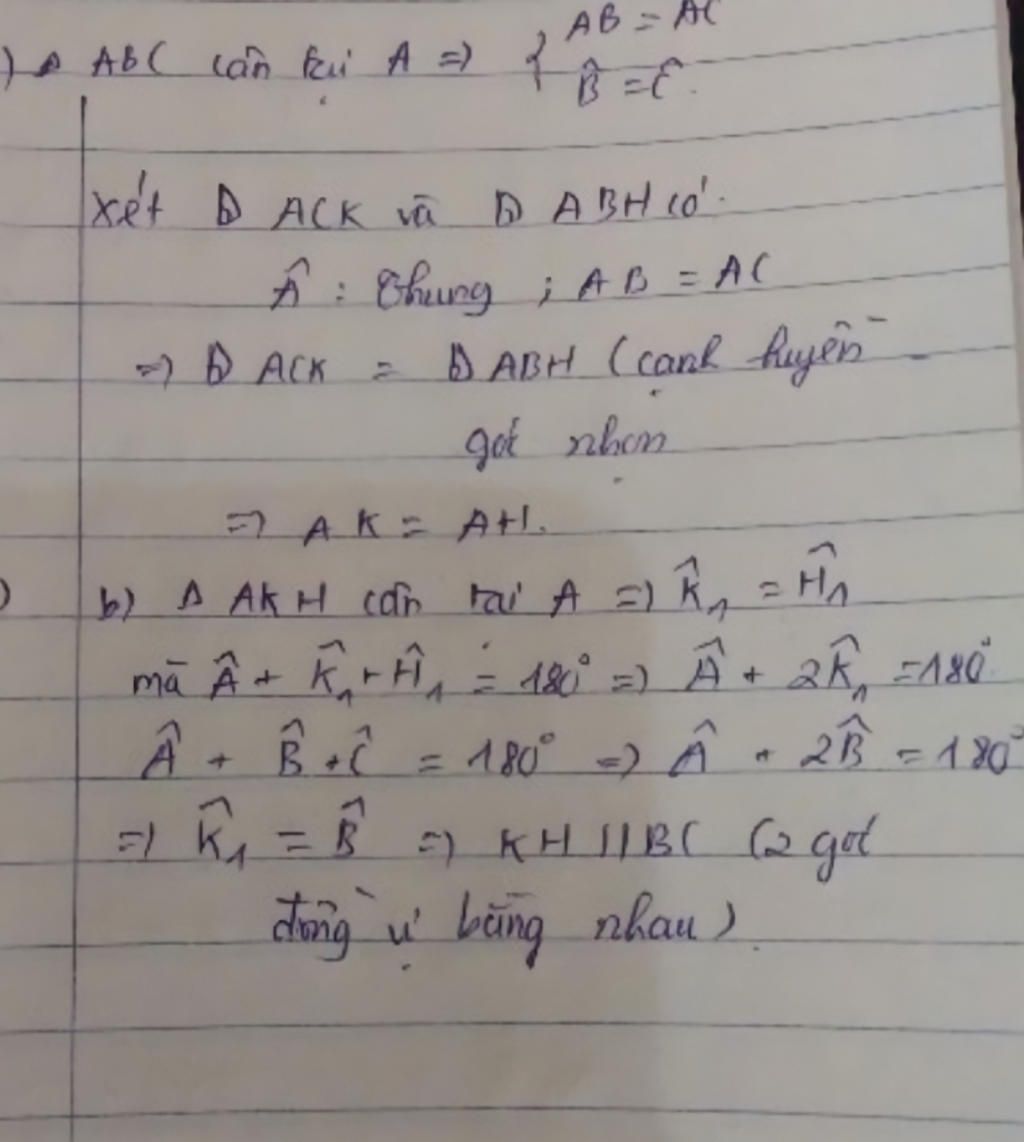 ) Δ ABC cân tại A => { AB = AC
B̂ = Ĉ.
Xét Δ ACK và Δ ABH có:
Â : Chung ; AB = AC
=> Δ ACK = Δ ABH (cạnh huyền -
góc nhọn
=> AK = AH.
) b) Δ AKH cân tại A => K̂₁ = Ĥ₁
mà Â + K̂₁ + Ĥ₁ = 180° => Â + 2K̂₁ = 180°
Â + B̂ + Ĉ = 180° => Â + 2B̂ = 180°
=> K̂₁ = B̂ => KH // BC (2 góc
đồng vị bằng nhau).